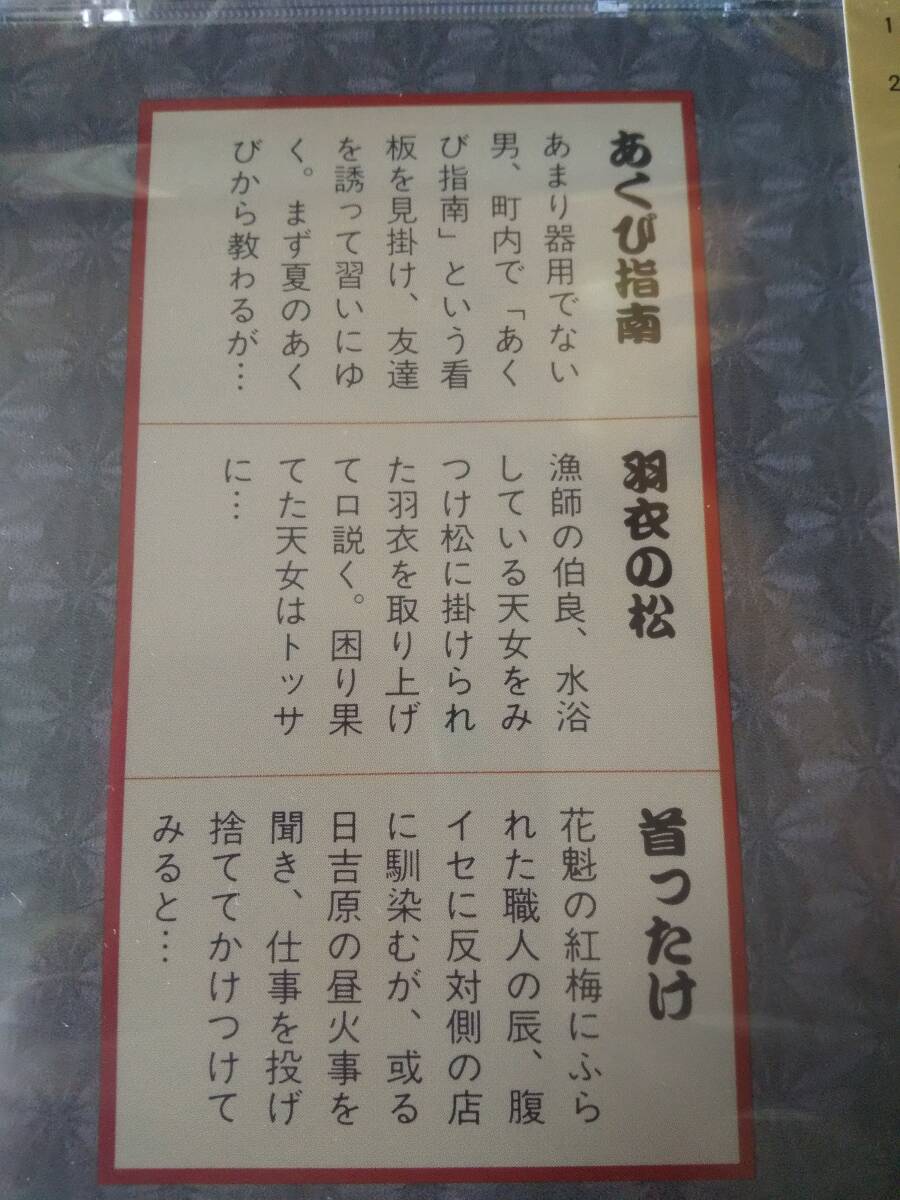 あくび指南
あまり器用でない
男、町内で「あく
び指南」という看
板を見掛け、友達
を誘って習いにゆ
く。まず夏のあく
びから教わるが…
羽衣の松
漁師の伯良、水浴
している天女をみ
つけ松に掛けられ
た羽衣を取り上げ
て口説く。困り果
てた天女はトッサ
に…
首ったけ
花魁の紅梅にふら
れた職人の辰、腹
イセに反対側の店
に馴染むが、或る
日吉原の昼火事を
聞き、仕事を投げ
捨ててかけつけて
みると…
1
2